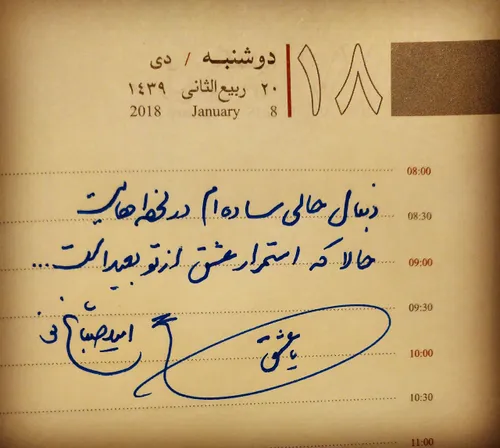 دوشنبه / دی
۱۸
۲۰ ربیع‌الثانی ۱۴۳۹
2018 January 8
08:00
دنبال حالی ساده ام در لحظه هایت
08:30
حالا که استمرار عشق از تو بعید است...
09:00
09:30
امید صباغ نو
با عشق
10:00
10:30
11:00